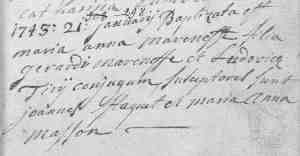 Catharina
1745: 21 January Baptizata est
maria anna marenesse filia
gerardi marenesse et Ludovica
Tiry conjugum susceptores sunt
joannes Paquet et maria anna
masson